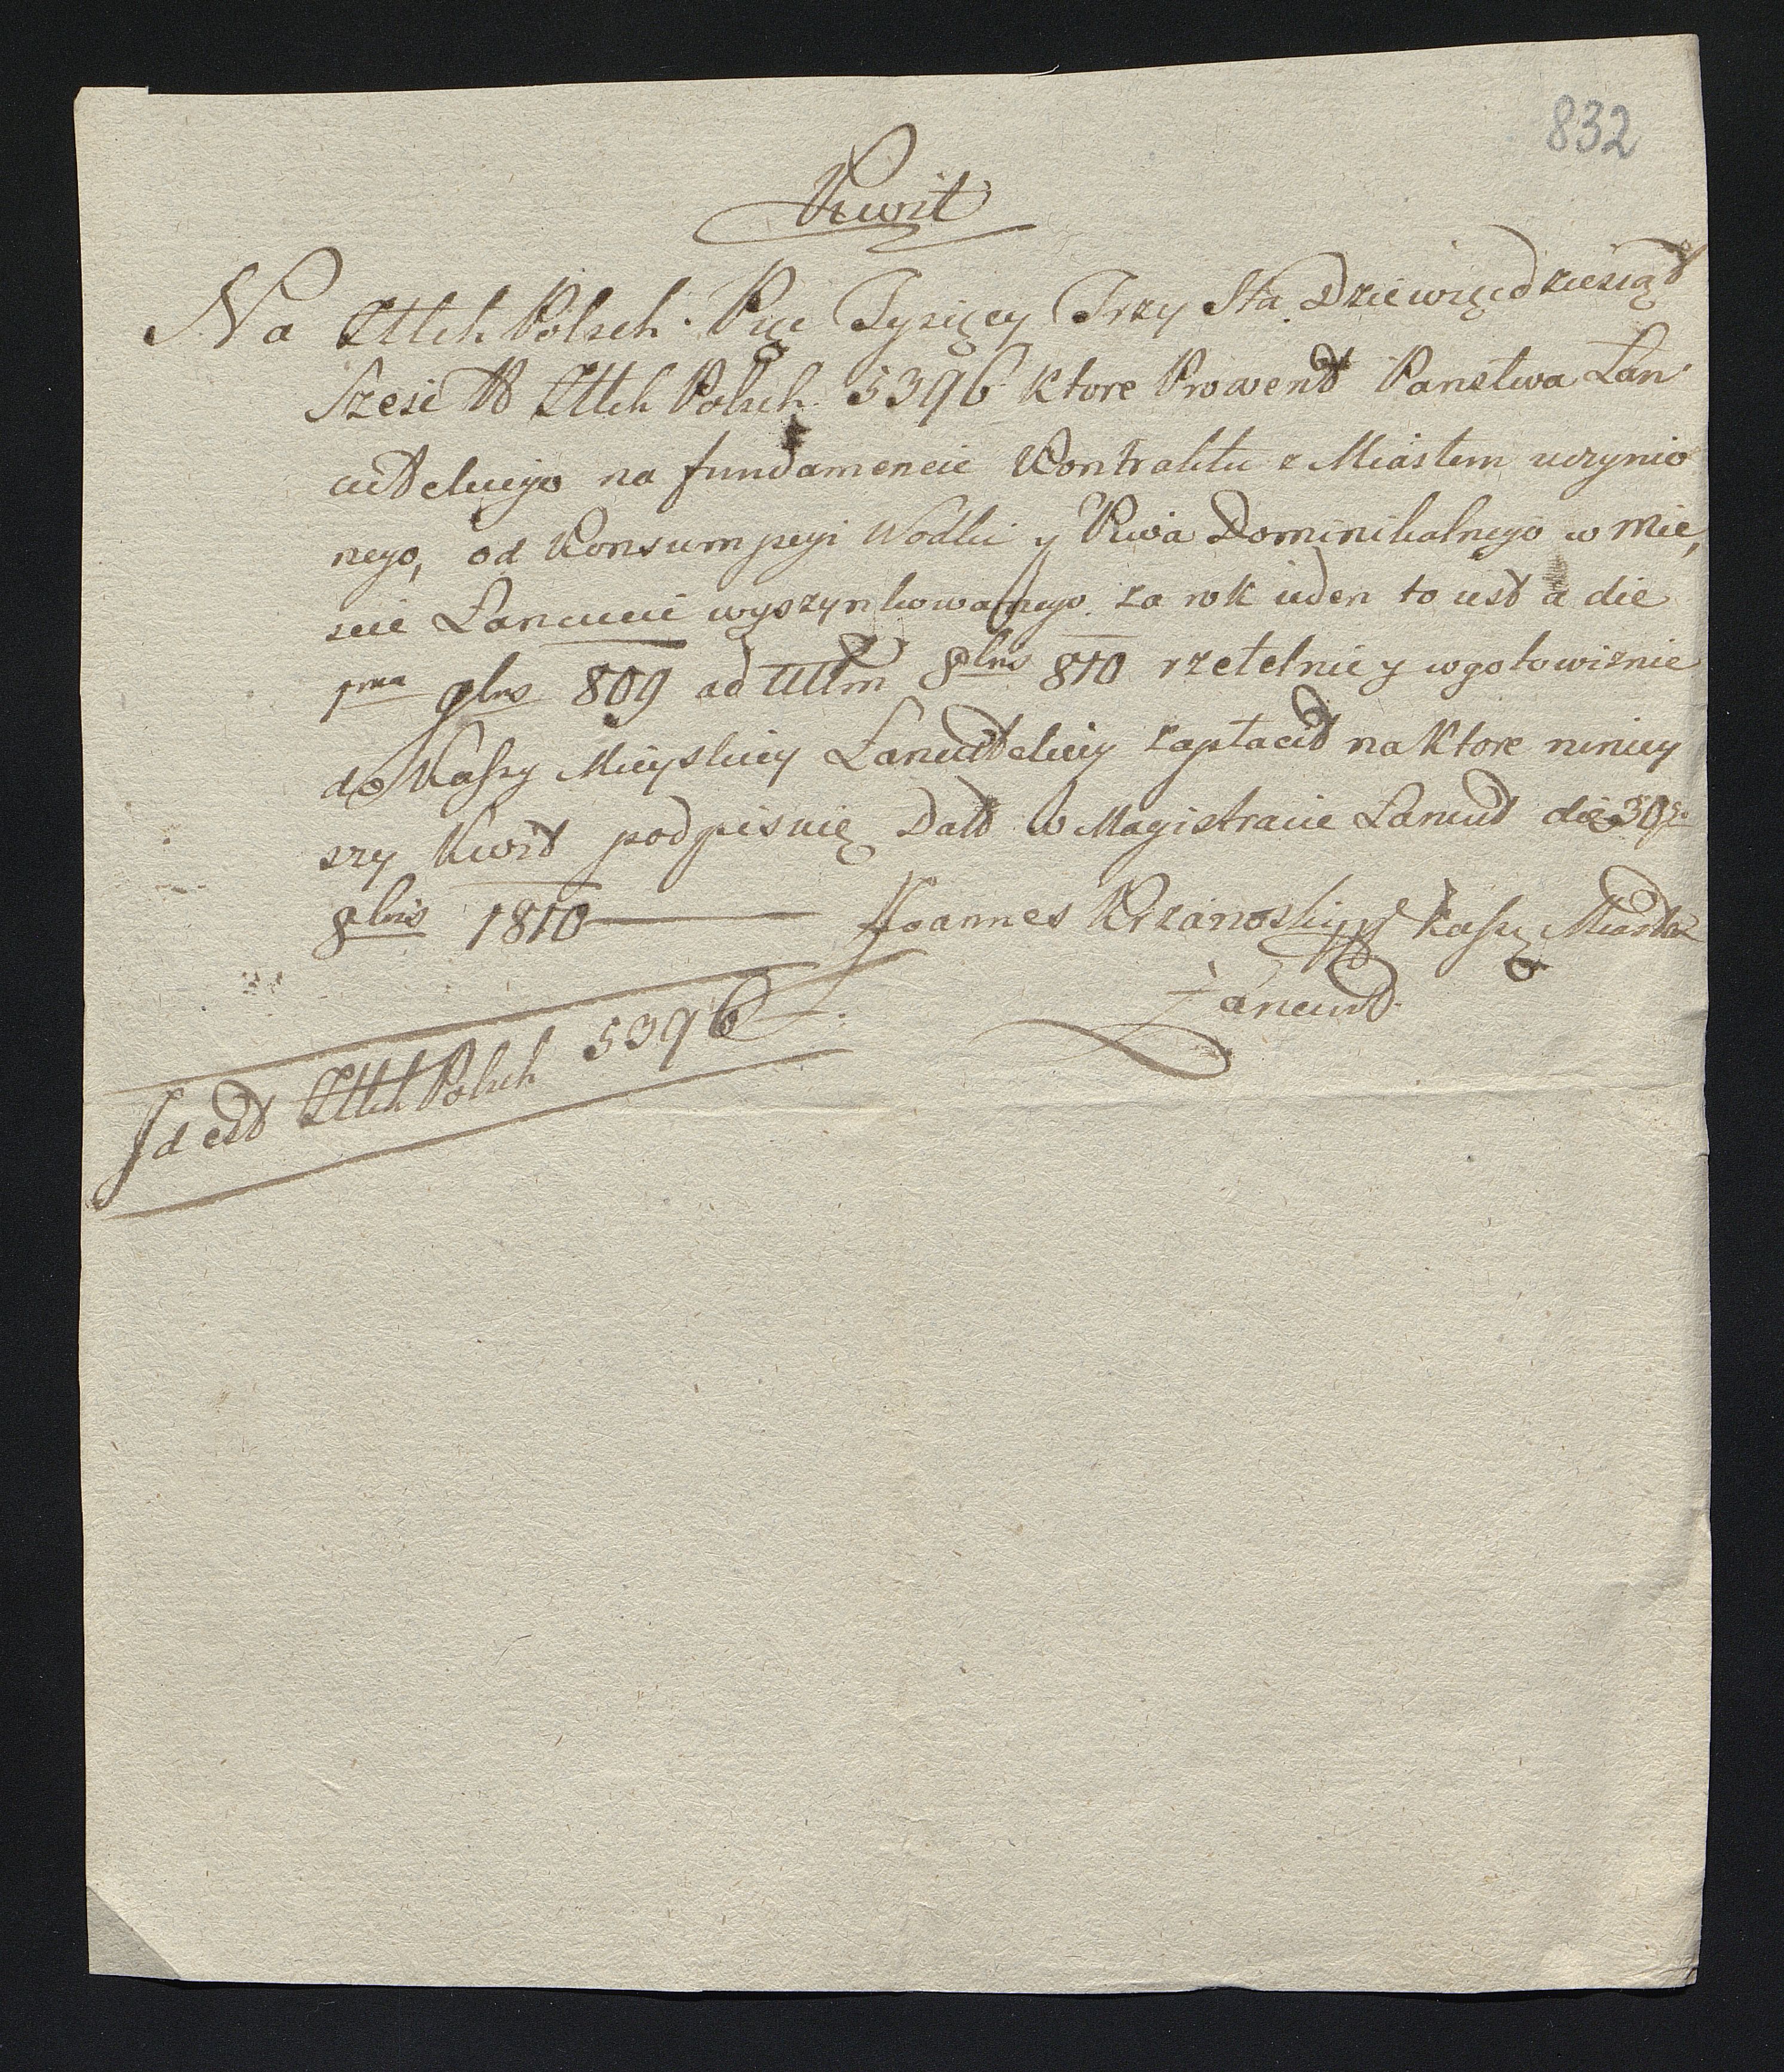 832
Kwit
Na Zttch Polsch. Pięc Tysięcy Trzy Sta Dziewięcdziesiąt
Szesc Zttch Polsch 5396 Ktore Prowent Panstwa Lan
cutskiego na fundamencie Kontraktu z Miastem uczynio
nego, od Konsumpcyi Wodki y Piwa Dominikalnego w Mie,
scie Lancucie wyszynkowanego. za rok ieden to iest a die
1ma 9bris 809 ad Ultm 8bris 810 rzetelnie y wgotowiznie
do Kassy Mieyskiey Lancutskiey zapłacił na Ktore niniey
szy Kwit podpisuię Datt w Magistracie Lancut die 30
8bris 1810 Joannes Krzanoski Kassy Miasta
Lancut
Id est Zttch Polsch 5396